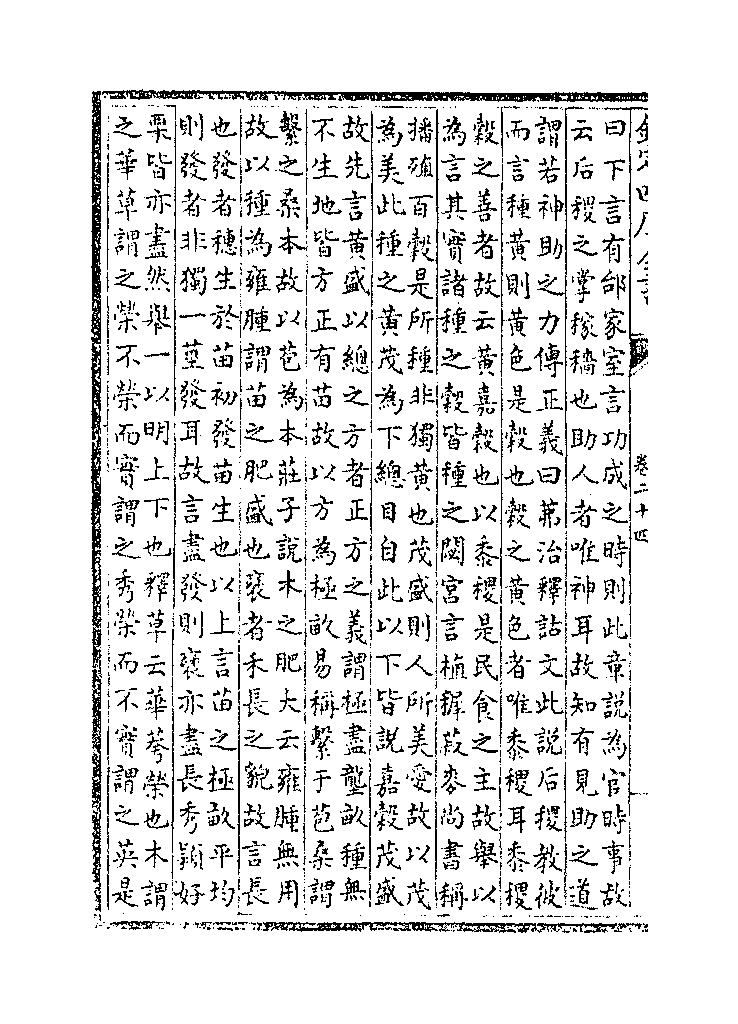 欽定四庫全書
卷二十四
曰下言有邰家室言功成之時則此章説為官時事故
云后稷之掌稼穡也助人者唯神耳故知有見助之道
謂若神助之力傳正義曰茀治釋詁文此説后稷教彼
而言種黄則黄色是穀也穀之黄色者唯黍稷耳黍稷
穀之善者故云黄嘉穀也以黍稷是民食之主故舉以
為言其實諸種之穀皆種之閟宫言稙穉菽麥尚書稱
播殖百穀是所種非獨黄也茂盛則人所美愛故以茂
為美此種之黄茂為下總目自此以下皆説嘉穀茂盛
故先言黄盛以總之方者正方之義謂極盡壟畝種無
不生地皆方正有苗故以方為極畝易稱繫于苞桑謂
繫之桑本故以苞為本莊子說木之肥大云雍腫無用
故以種為雍腫謂苗之肥盛也褎者禾長之貌故言長
也發者穗生於苗初發苗生也以上言苗之極畝平均
則發者非獨一莖發耳故言盡發則褎亦盡長秀穎好
栗皆亦盡然舉一以明上下也釋草云華荂榮也木謂
之華草謂之榮不榮而實謂之秀榮而不實謂之英是